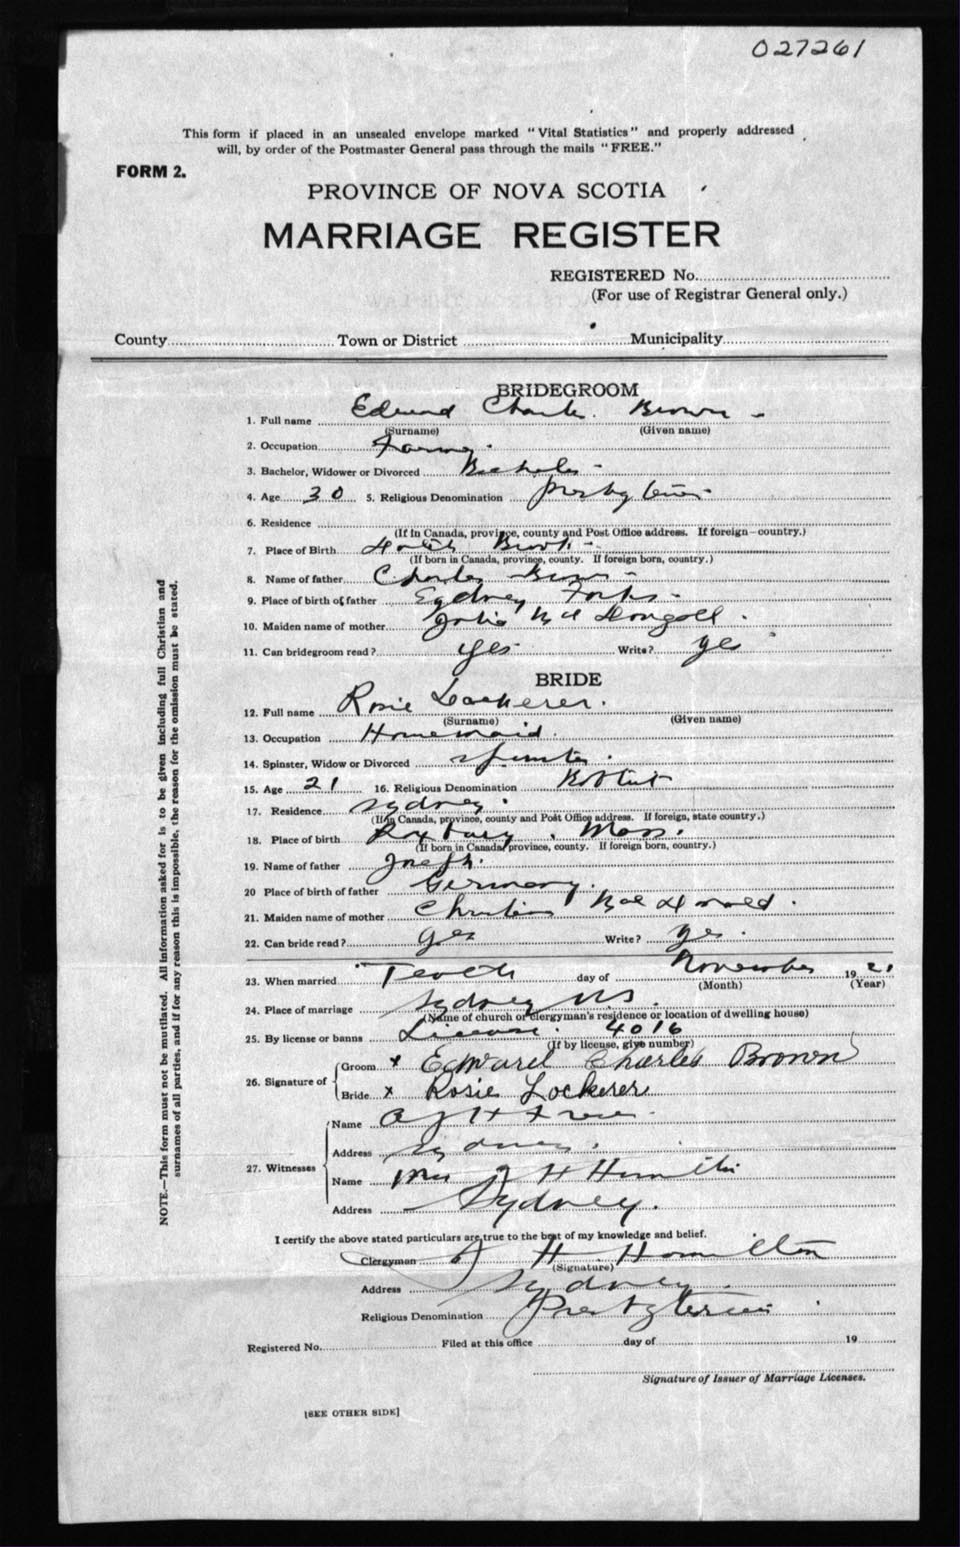 027261
This form if placed in an unsealed envelope marked "Vital Statistics" and properly addressed
will, by order of the Postmaster General pass through the mails "FREE."
FORM 2.
PROVINCE OF NOVA SCOTIA
MARRIAGE REGISTER
REGISTERED No.
(For use of Registrar General only.)
County Town or District Municipality
BRIDEGROOM
1. Full name Edward Charles Brown
(Surname) (Given name)
2. Occupation
3. Bachelor, Widower or Divorced Bachelor
4. Age 30 5. Religious Denomination Presbyterian
6. Residence
(If in Canada, province, county and Post Office address. If foreign—country.)
7. Place of Birth Brook
(If born in Canada, province, county. If foreign born, country.)
8. Name of father Charles Brown
9. Place of birth of father Sydney Forks
10. Maiden name of mother
11. Can bridegroom read? Yes Write? Yes
BRIDE
12. Full name Rosie Lockerer.
(Surname) (Given name)
13. Occupation Housemaid.
14. Spinster, Widow or Divorced Spinster
15. Age 21 16. Religious Denomination
17. Residence Sydney
(If in Canada, province, county and Post Office address. If foreign, state country.)
18. Place of birth Roxbury, Mass.
(If born in Canada, province, county. If foreign born, country.)
19. Name of father Joseph.
20 Place of birth of father Germany.
21. Maiden name of mother
22. Can bride read? Yes Write? Yes
23. When married day of November 1921
(Month) (Year)
24. Place of marriage Sydney NS.
(Name of church or clergyman's residence or location of dwelling house)
25. By license or banns License. 4016
(If by license, give number)
26. Signature of
Groom x Edward Charles Brown
Bride x Rosie Lockerer
27. Witnesses
Name
Address Sydney.
Name Mrs J H Hamilton
Address Sydney.
I certify the above stated particulars are true to the best of my knowledge and belief.
Clergyman H Hamilton
(Signature)
Address Sydney.
Religious Denomination Presbyterian
Registered No. Filed at this office day of 19
Signature of Issuer of Marriage Licenses.
[SEE OTHER SIDE]
NOTE.—This form must not be mutilated. All information asked for is to be given including full Christian and
surnames of all parties, and if for any reason this is impossible, the reason for the omission must be stated.